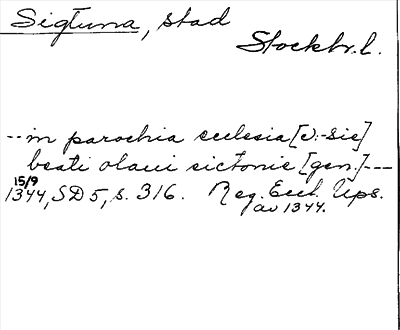 Sigtuna, stad
Stockh.l.
--in parochia ecclesia [v:-sie]
beati olaui sictonie [gen.]---
15/9
1344, SD 5, s. 316. Reg. Eccl. Ups.
av 1344.